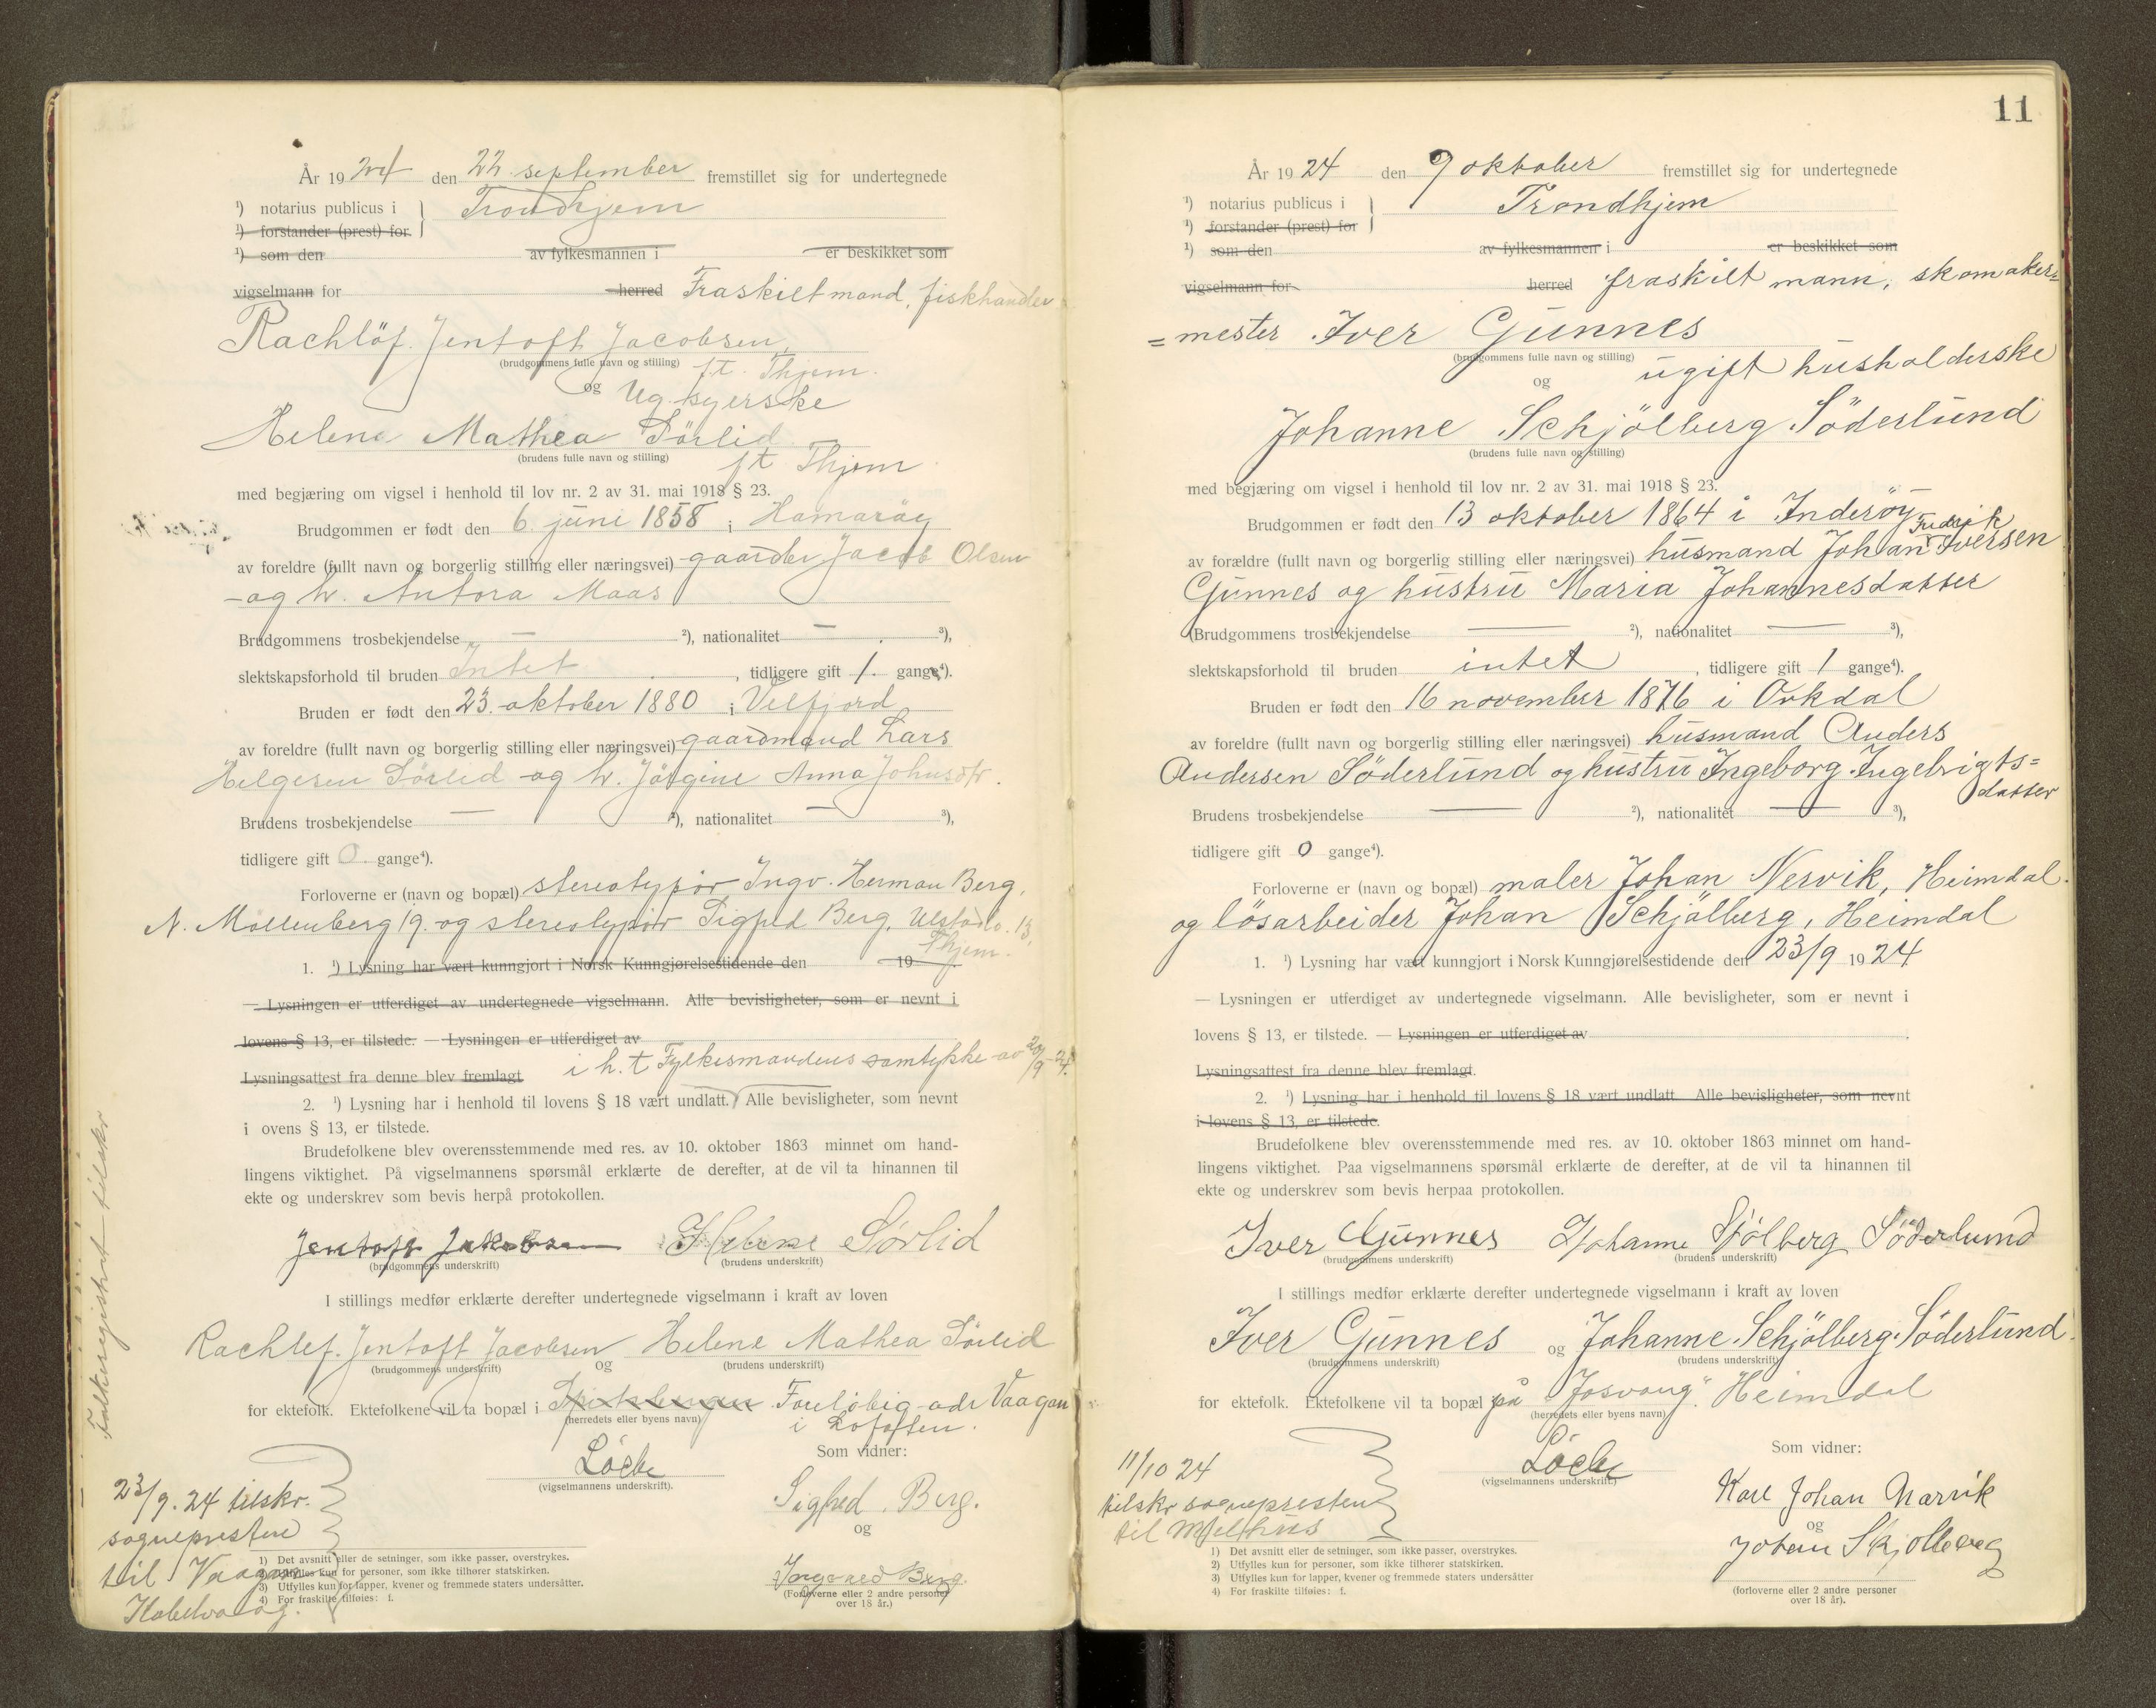 År 1924 den 22 september fremstillet sig for undertegnede
¹) notarius publicus i } Trondhjem
¹) forstander (prest) for
¹) som den av fylkesmannen i er beskikket som
vigselmann for herred Fraskilt mand, fiskhandler
Rachlöf Jentoft Jacobsen,
(brudgommens fulle navn og stilling) ft. Thjem.
og Ug. syerske
Helene Mathea Sörlid
(brudens fulle navn og stilling) ft Thjem
med begjæring om vigsel i henhold til lov nr. 2 av 31. mai 1918 § 23.
Brudgommen er født den 6. juni 1858 i Hamaröy
av foreldre (fullt navn og borgerlig stilling eller næringsvei) gaardbr Jacob Olsen
og h. Antora Maas
Brudgommens trosbekjendelse — ²), nationalitet — ³),
slektskapsforhold til bruden Intet, tidligere gift 1. gange⁴).
Bruden er født den 23. oktober 1880 i Velfjord
av foreldre (fullt navn og borgerlig stilling eller næringsvei) gaardmand Lars
Helgesen Sörlid og h. Jörgine Anna Johnsdtr.
Brudens trosbekjendelse — ²), nationalitet — ³),
tidligere gift 0. gange⁴).
Forloverne er (navn og bopæl) stereotypör Ingv. Herman Berg,
N. Möllenberg 19. og stereotypör Sigfred Berg, Ulstadlø. 13,
Thjem.
1. ¹) Lysning har vært kunngjort i Norsk Kunngjørelsestidende den 19
— Lysningen er utferdiget av undertegnede vigselmann. Alle bevisligheter, som er nevnt i
lovens § 13, er tilstede. — Lysningen er utferdiget av
Lysningsattest fra denne blev fremlagt. i h. t Fylkesmandens samtykke av 20/9-24.
2. ¹) Lysning har i henhold til lovens § 18 vært undlatt. Alle bevisligheter, som nevnt
i ovens § 13, er tilstede.
Brudefolkene blev overensstemmende med res. av 10. oktober 1863 minnet om hand-
lingens viktighet. På vigselmannens spørsmål erklærte de derefter, at de vil ta hinannen til
ekte og underskrev som bevis herpå protokollen.
Jentoft Jakobsen Helene Sörlid
(brudgommens underskrift) (brudens underskrift)
I stillings medfør erklærte derefter undertegnede vigselmann i kraft av loven
Rachlef Jentoft Jacobsen Helene Mathea Sörlid
(brudgommens underskrift) og (brudens underskrift)
for ektefolk. Ektefolkene vil ta bopæl i Foreløbig adr Vaagan
(herredets eller byens navn) i Lofoten.
Löcke Som vidner:
(vigselmannens underskrift).
Sigfred. Berg.
og
Ingvald Berg.
(Forloverne eller 2 andre personer
over 18 år.)
23/9. 24 tilskr.
sognepresten
til Vaagan
Kabelvaag.
Folkeregistret tilskr
1) Det avsnitt eller de setninger, som ikke passer, overstrykes.
2) Utfylles kun for personer, som ikke tilhører statskirken.
3) Utfylles kun for lapper, kvener og fremmede staters undersåtter.
4) For fraskilte tilføies: f.
11
År 1924 den 9 oktober fremstillet sig for undertegnede
¹) notarius publicus i } Trondhjem
¹) forstander (prest) for
¹) som den av fylkesmannen i er beskikket som
vigselmann for herred fraskilt mann, skomaker=
=mester Iver Gunnes
(brudgommens fulle navn og stilling)
og ugift husholderske
Johanne Schjölberg Söderlund
(brudens fulle navn og stilling)
med begjæring om vigsel i henhold til lov nr. 2 av 31. mai 1918 § 23.
Brudgommen er født den 13 oktober 1864 i Inderöy
av forældre (fullt navn og borgerlig stilling eller næringsvei) husmand Johan Fredrik Iversen
Gunnes og hustru Maria Johannesdatter
(Brudgommens trosbekjendelse — ²), nationalitet — ³),
slektskapsforhold til bruden intet, tidligere gift 1 gange⁴).
Bruden er født den 16 november 1876 i Orkdal
av foreldre (fullt navn og borgerlig stilling eller næringsvei) husmand Anders
Andersen Söderlund og hustru Ingeborg Ingebrigts=
datter
Brudens trosbekjendelse — ²), nationalitet — ³),
tidligere gift 0 gange⁴).
Forloverne er (navn og bopæl) maler Johan Nervik, Heimdal.
og lösarbeider Johan Schjölberg, Heimdal
1. ¹) Lysning har vært kunngjort i Norsk Kunngjørelsestidende den 23/9 1924
— Lysningen er utferdiget av undertegnede vigselmann. Alle bevisligheter, som er nevnt i
lovens § 13, er tilstede. — Lysningen er utferdiget av .
Lysningsattest fra denne blev fremlagt.
2. ¹) Lysning har i henhold til lovens § 18 vært undlatt. Alle bevisligheter, som nevnt
i lovens § 13, er tilstede.
Brudefolkene blev overensstemmende med res. av 10. oktober 1863 minnet om hand-
lingens viktighet. Paa vigselmannens spørsmål erklærte de derefter, at de vil ta hinannen til
ekte og underskrev som bevis herpaa protokollen.
Iver Gunnes Johanne Sjölberg Söderlund
(brudgommens underskrift) (brudens underskrift)
I stillings medfør erklærte derefter undertegnede vigselmann i kraft av loven
Iver Gunnes og Johanne Schjölberg Söderlund.
(brudgommens underskrift) (brudens underskrift)
for ektefolk. Ektefolkene vil ta bopæl på "Josvang". Heimdal
(herredets eller byens navn)
Löcke Som vidner:
(vigselmannens underskrift)
Karl Johan Narvik
og
Johan Skjolberg
(forloverne eller 2 andre personer
over 18 år).
11/10 24
tilskr sognepresten
til Melhus
1) Det avsnitt eller de setninger, som ikke passer, overstrykes.
2) Utfylles kun for personer, som ikke tilhører statskirken.
3) Utfylles kun for lapper, kvener og fremmede staters undersåtter
4) For fraskilte tilføies: f.